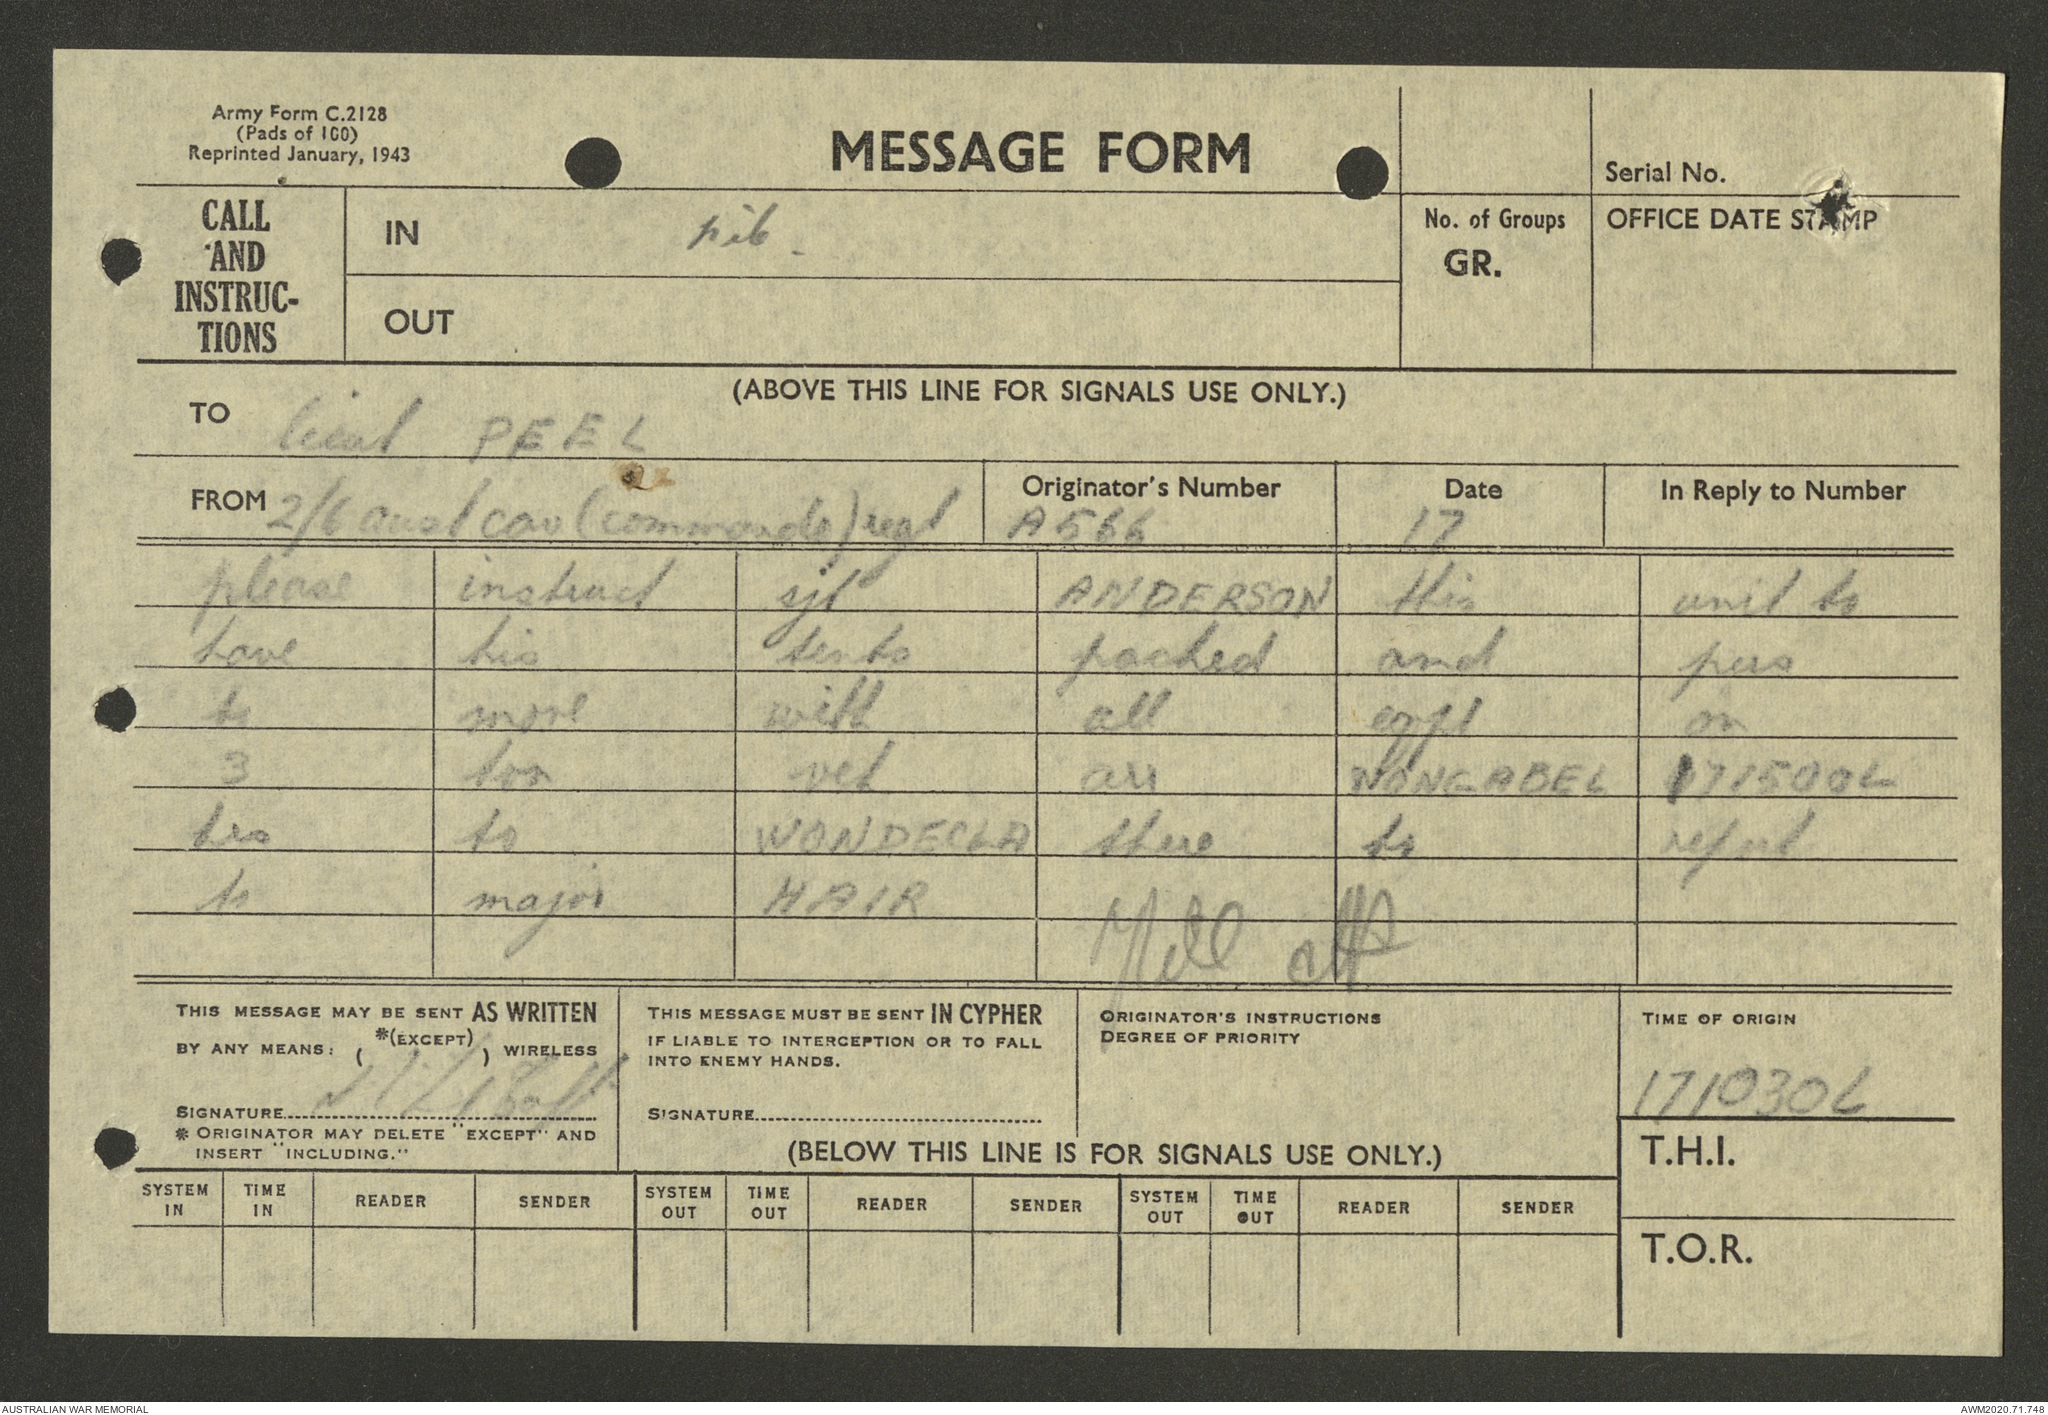 Army Form C.2128
(Pads of 100)
Reprinted January, 1943
MESSAGE FORM
Serial No.
CALL
AND
INSTRUC-
TIONS
IN
OUT
No. of Groups
GR.
OFFICE DATE STAMP
(ABOVE THIS LINE FOR SIGNALS USE ONLY.)
TO lieut PEEL
FROM 2/6 aust cav (commando) regt
Originator's Number
A566
Date
17
In Reply to Number
please instruct sjt ANDERSON this unit to
have his tents packed and pers
to move with all eqpt on
3 ton veh arr WONGABEL 171500L
hrs to WONDECLA there to report
to major HAIR
THIS MESSAGE MAY BE SENT AS WRITTEN
BY ANY MEANS: ( *(EXCEPT) ) WIRELESS
SIGNATURE
* ORIGINATOR MAY DELETE "EXCEPT" AND
INSERT "INCLUDING."
THIS MESSAGE MUST BE SENT IN CYPHER
IF LIABLE TO INTERCEPTION OR TO FALL
INTO ENEMY HANDS.
SIGNATURE
ORIGINATOR'S INSTRUCTIONS
DEGREE OF PRIORITY
TIME OF ORIGIN
171030L
(BELOW THIS LINE IS FOR SIGNALS USE ONLY.)
T.H.I.
T.O.R.
SYSTEM IN TIME IN READER SENDER SYSTEM OUT TIME OUT READER SENDER SYSTEM OUT TIME OUT READER SENDER
AUSTRALIAN WAR MEMORIAL
AWM2020.71.748